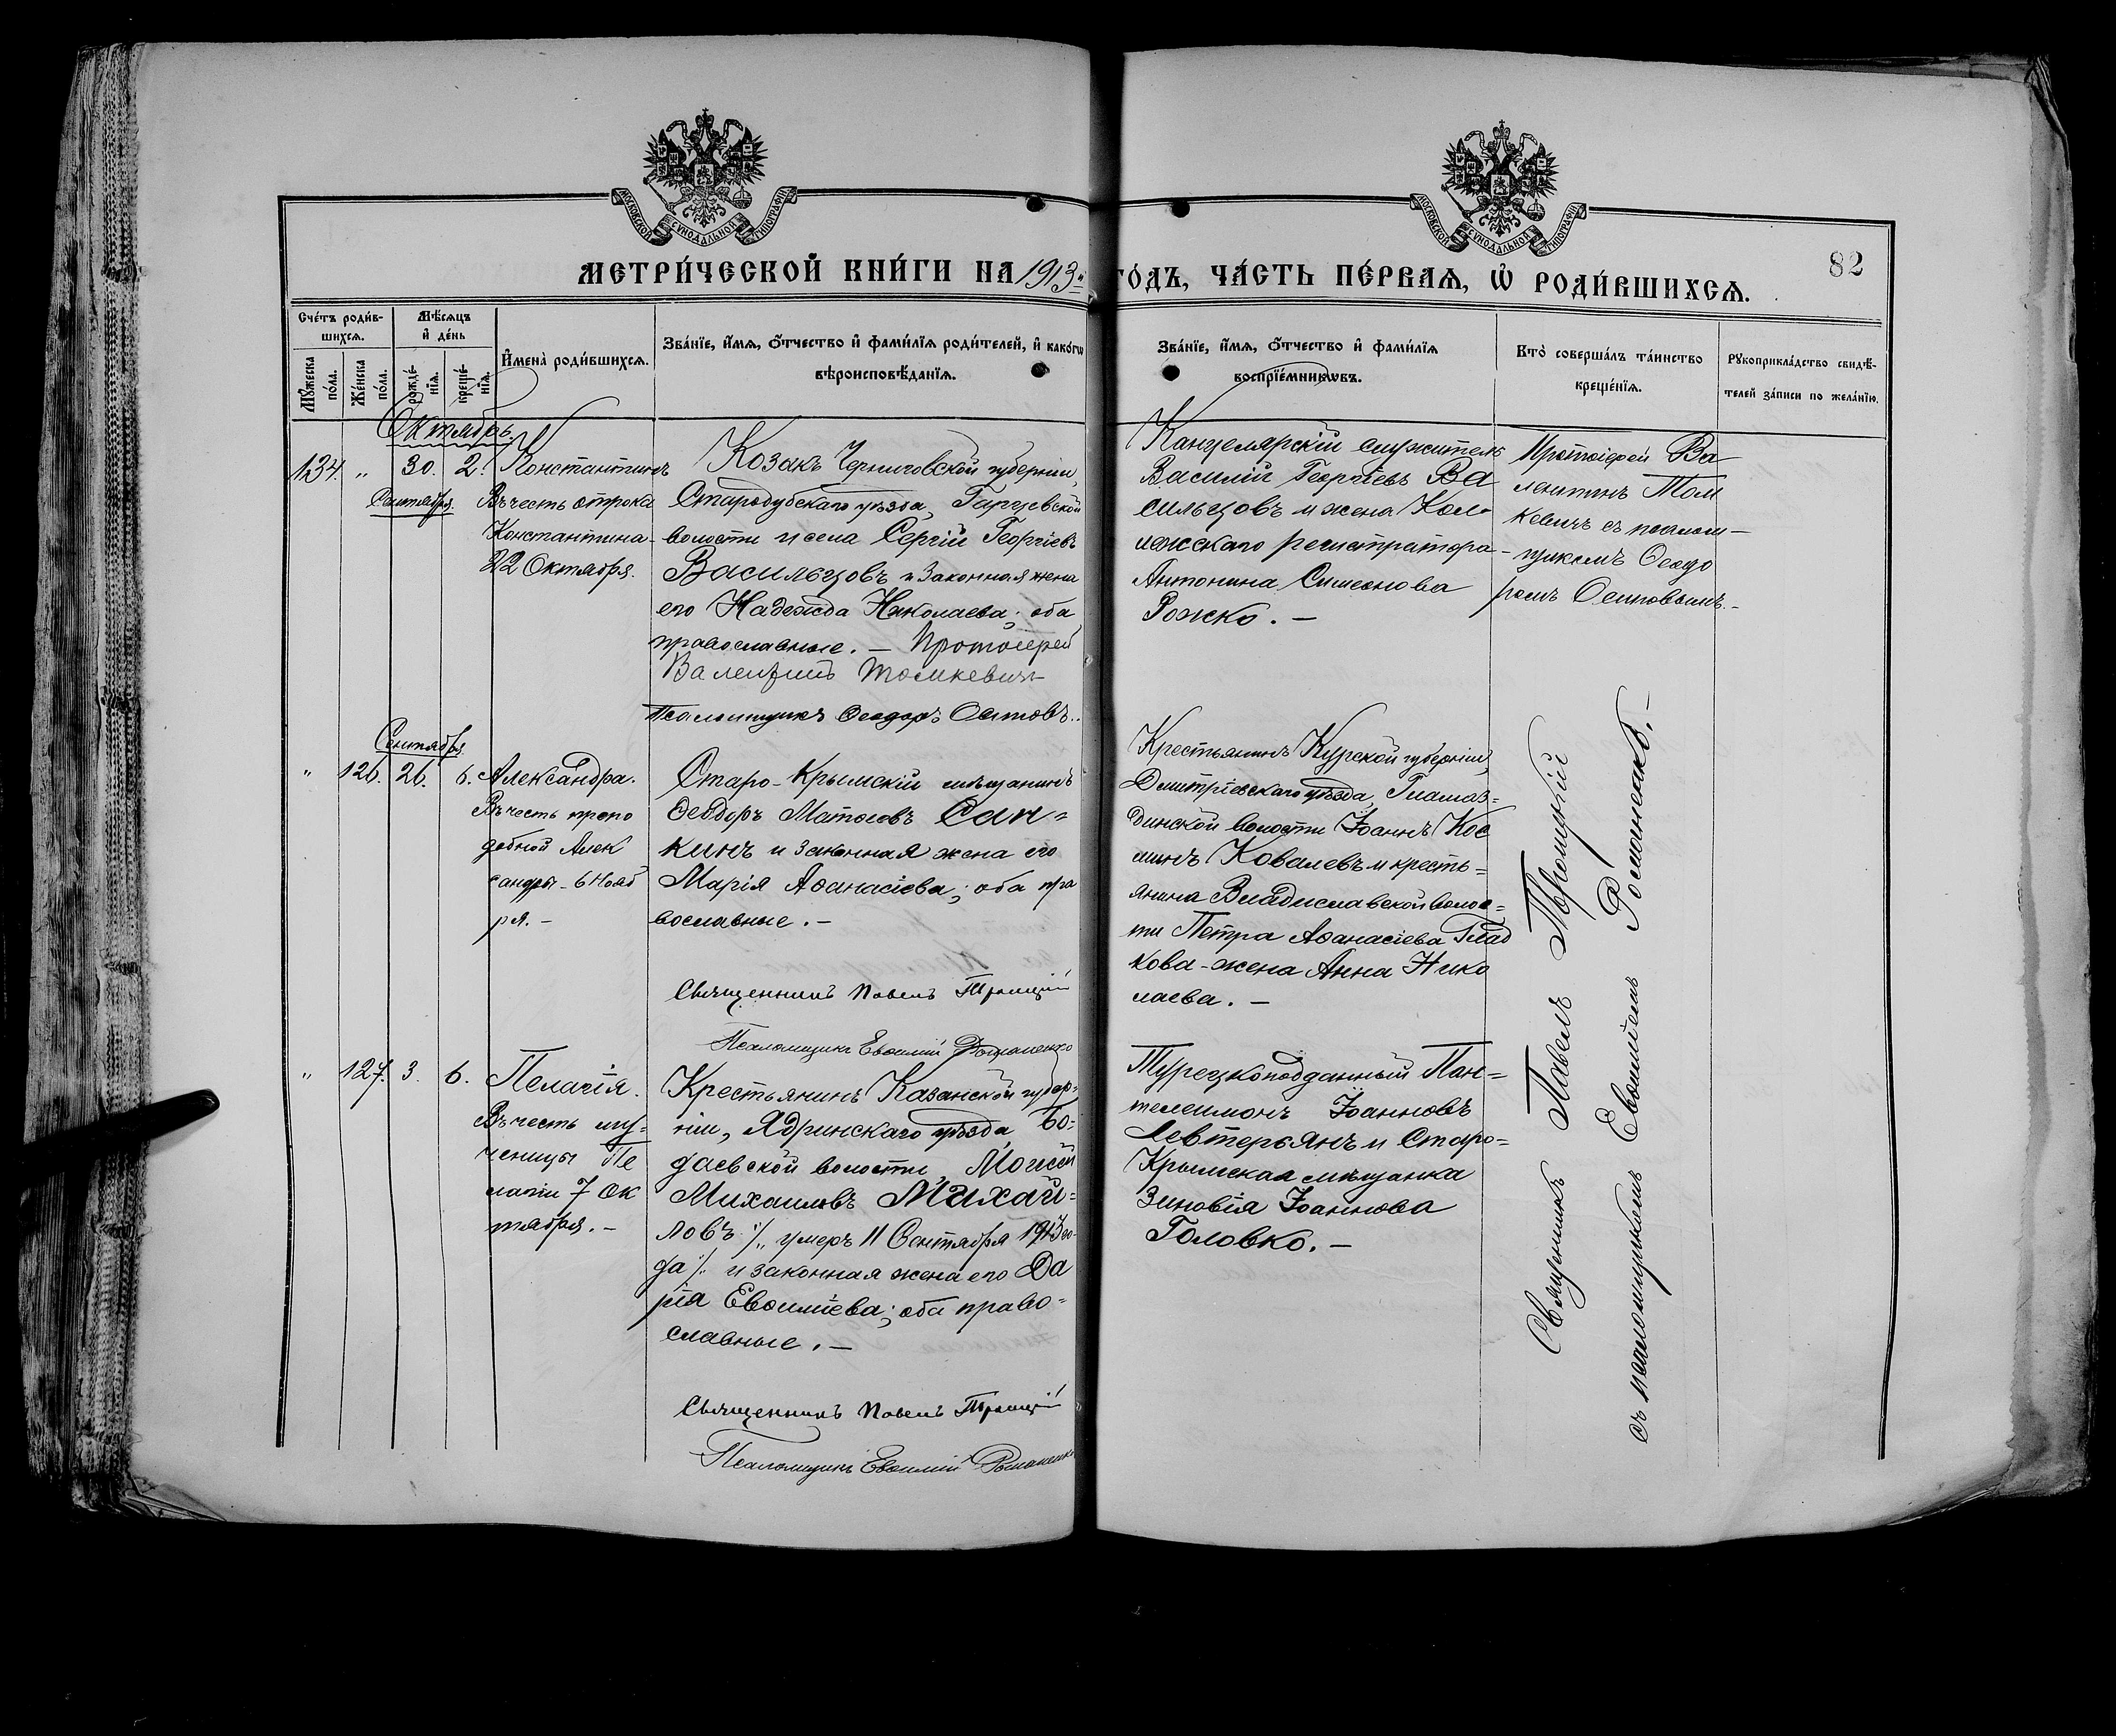 МОСКОВСКОЙ СѴНОДАЛЬНОЙ ТИПОГРАФІИ
МОСКОВСКОЙ СѴНОДАЛЬНОЙ ТИПОГРАФІИ
МЕТРИ́ЧЕСКОЙ КНИ́ГИ НА 1913й ГО́ДЪ, ЧА́СТЬ ПЕ́РВАѦ, Ѡ҆ РОДИ́ВШИХСѦ.
82
Сче́тъ роди́в-
шихсѧ.
Мꙋ́жеска по́ла.
Же́нска по́ла.
Мѣ́сѧцъ
и҆ де́нь
рожде́-нїѧ.
креще́-нїѧ.
И҆мена̀ роди́вшихсѧ.
Зва́нїе, и҆́мѧ, ѻ҆́тчество и҆ фами́лїѧ роди́телей, и҆ како́гѡ
вѣроисповѣ́данїѧ.
Зва́нїе, и҆́мѧ, ѻ҆́тчество и҆ фами́лїѧ
воспрїе́мникѡвъ.
Кто̀ соверша́лъ та́инство
креще́нїѧ.
Рꙋкоприкла́дство свидѣ́-
телей за́писи по жела́нїю.
Октябрь.
134. „ 30. 2.
Сентября.
Константинъ
Въ честь отрока
Константина
22 Октября.
Козакъ Черниговской губерніи,
Стародубскаго уѣзда, Гарцевской
волости и села Сергій Георгіевъ
Васильцовъ и законная жена
его Надежда Николаева; оба
православные. – Протоіерей
Валентинъ Томкевичъ
Псаломщикъ Ѳеодоръ Осиповъ.
Канцелярскій служитель
Василій Георгіевъ Ва
сильцовъ и жена Кол-
лежскаго регистратора
Антонина Симеонова
Рожко. –
Протоіерей Ва
лентинъ Том
кевичъ съ псалом–
щикомъ Ѳеодо
ромъ Осиповымъ. –
Сентября
„ 126. 26. 6.
Александра.
Въ честь препо
добной Алек
сандры – 6 Нояб
ря. –
Старо-Крымскій мѣщанинъ
Ѳеодоръ Матѳеевъ Сап=
кинъ и законная жена его
Марія Аѳанасіева; оба пра
вославные. –
Священникъ Павелъ Троицкій
Псаломщикъ Евѳимій Романенко
Крестьянинъ Курской губерніи,
Дмитріевскаго уѣзда, Гламаз=
динской волости Іоаннъ Кос
минъ Ковалевъ и кресть=
янина Владиславской волос=
ти Петра Аѳанасіева Глад
кова – жена Анна Нико
лаева. –
„ 127. 3. 6.
Пелагія.
Въ честь му=
ченицы Пе
лагіи 7 Ок
тября. –
Крестьянинъ Казанской губер=
ніи, Ядринскаго уѣзда, Бо=
даевской волости, Моисей
Михаиловъ Михай=
ловъ /: умеръ 11 Сентября 1913 го-
да :/ и законная жена его Да
рія Евѳиміева; оба право=
славные. –
Священникъ Павелъ Троицкій
Псаломщикъ Евѳимій Романенко
Турецкоподданный Пан=
телеимонъ Іоанновъ
Левтерьянъ и Старо=
Крымская мѣщанка
Зиновія Іоаннова
Головко. –
Священникъ Павелъ Троицкій
съ псаломщикомъ Евѳиміемъ Романенко. –